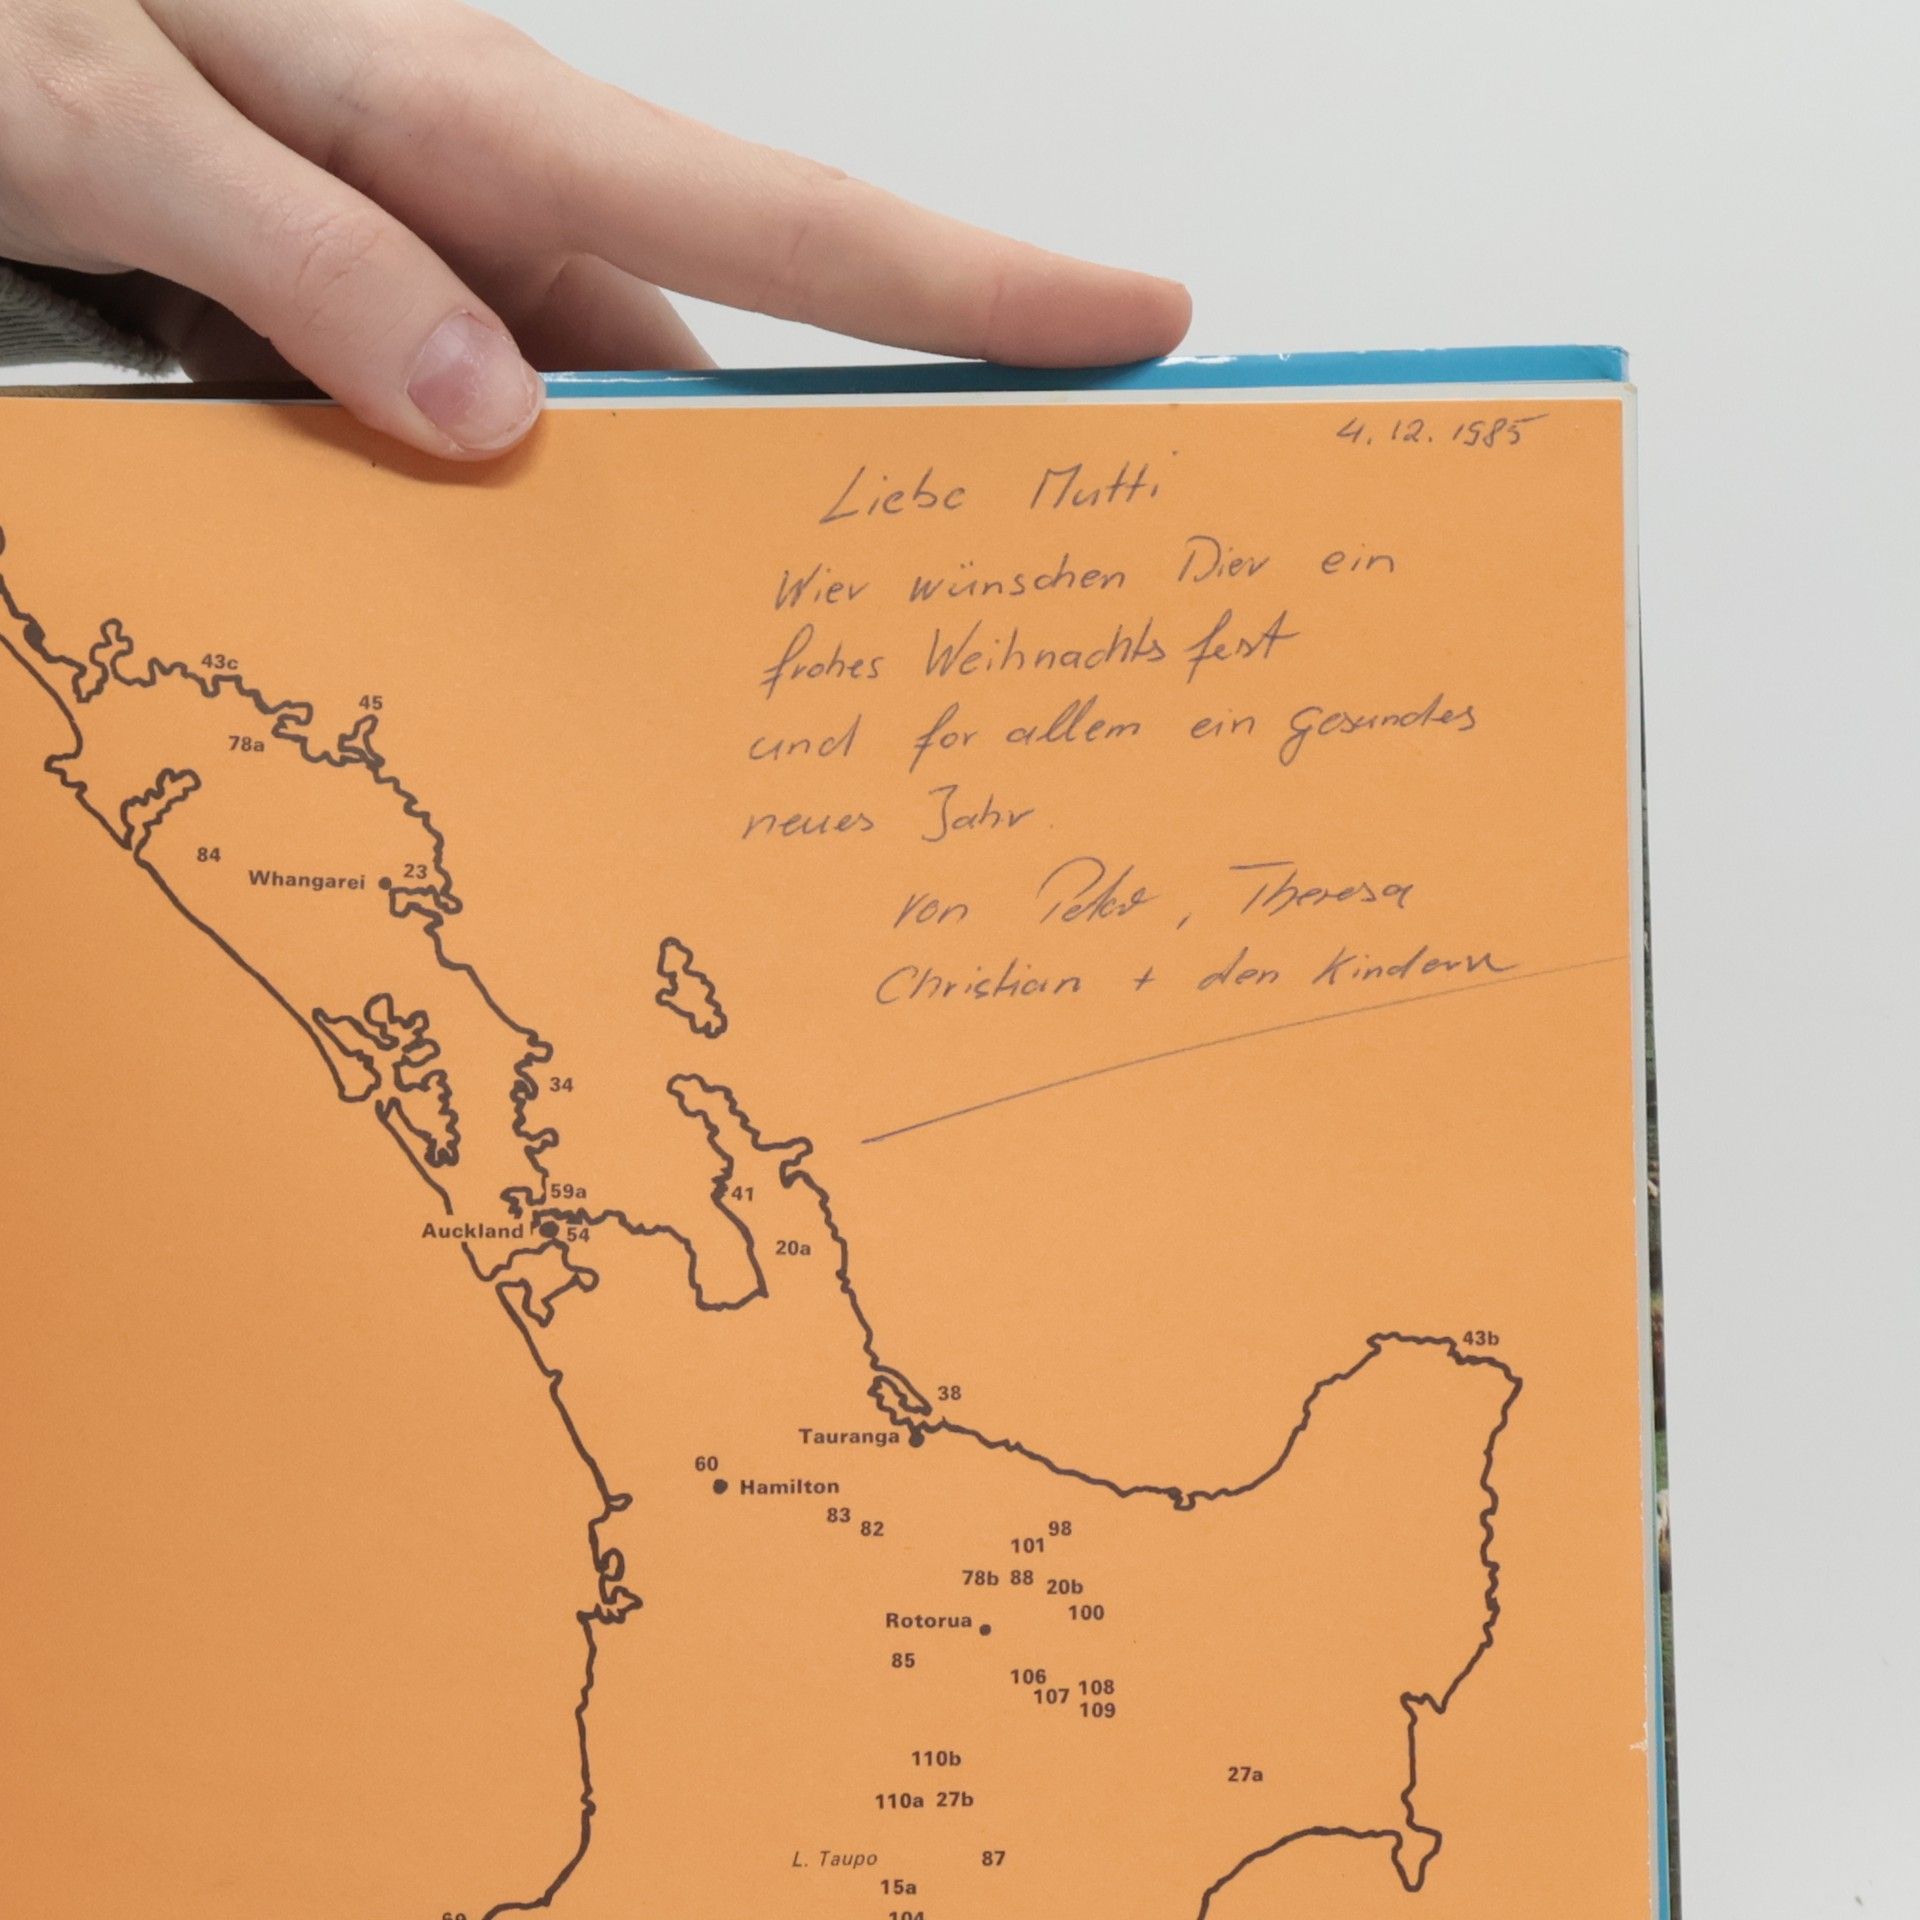 4.12.1985
Liebe Mutti
Wier wünschen Dier ein
frohes Weihnachtsfest
und for allem ein gesundes
neues Jahr.
von Peter, Theresa
Christian + den Kindern
43c
45
78a
84
Whangarei
23
34
59a
Auckland
54
41
20a
43b
38
Tauranga
60
Hamilton
83
82
98
101
78b 88 20b
100
Rotorua
85
106
107 108
109
110b
27a
110a 27b
L. Taupo
87
15a
104